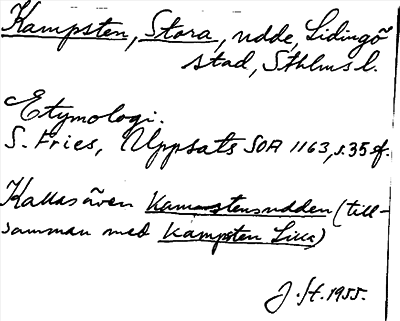 Kampsten, Stora, udde, Lidingö
stad, Sthlms l.
Etymologi.
S. Fries, Uppsats SOA 1163, s. 35 sf.
Kallas även Kamstensudden (till-
samman med Kampsten Lilla)
J. St. 1955.